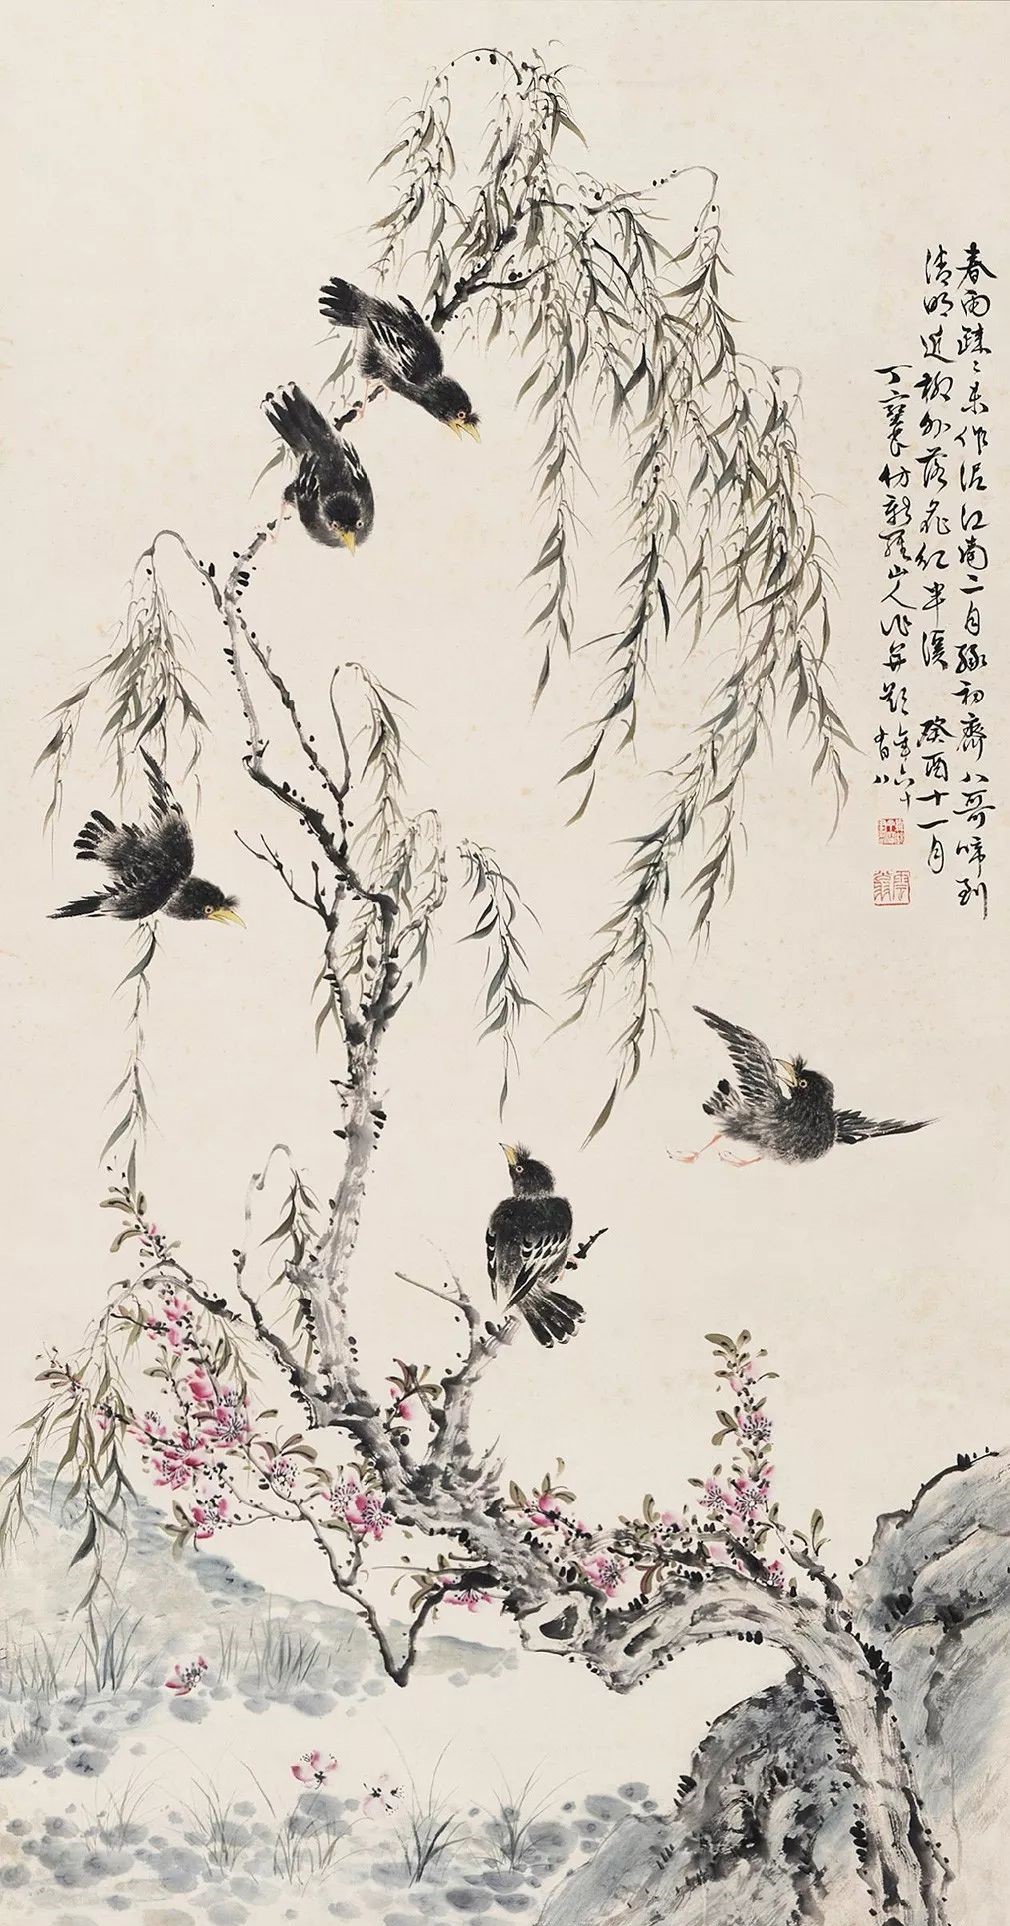 春雨疎〻未作泥江南二月綠初齊八哥啼到
清明近柳外落花紅半溪 癸酉十一月
丁寶書仿新羅山人作并題 年六十
有八